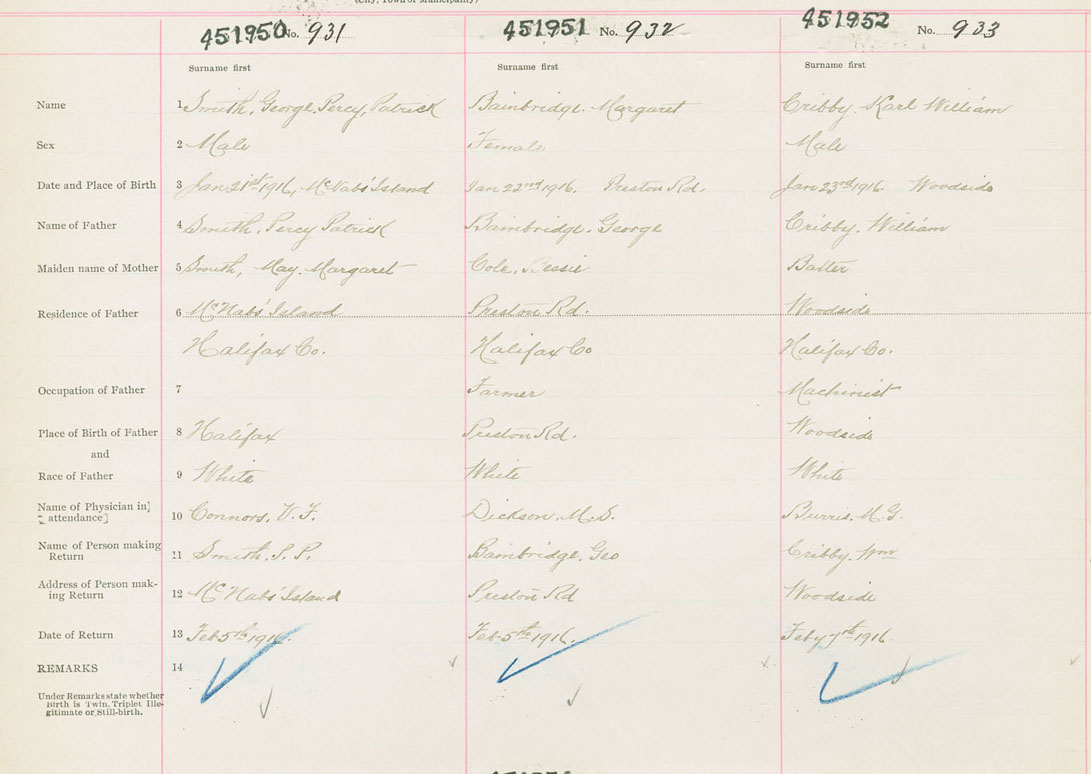 (City, Town or Municipality)
451950 No. 931 451951 No. 932 451952 No. 933
Surname first Surname first Surname first
Name 1 Smith, George, Percy, Patrick Bainbridge. Margaret Cribby. Karl William
Sex 2 Male Female Male
Date and Place of Birth 3 Jan 21st 1916, McNabs' Island Jan 22nd 1916. Preston Rd. Jan 23rd 1916. Woodside
Name of Father 4 Smith, Percy Patrick Bainbridge. George Cribby. William
Maiden name of Mother 5 Smith, May. Margaret Cole, Bessie
Residence of Father 6 McNabs' Island Preston Rd. Woodside
Halifax Co. Halifax Co Halifax Co.
Occupation of Father 7 Farmer Machinist
Place of Birth of Father 8 Halifax Preston Rd. Woodside
and
Race of Father 9 White White White
Name of Physician in
attendance 10 Connors, V. F. Dickson. M. S. Burris. M. G.
Name of Person making
Return 11 Smith. P. P. Bainbridge, Geo Cribby. Wm
Address of Person mak-
ing Return 12 McNabs' Island Preston Rd Woodside
Date of Return 13 Feb 5th 1916. Feb 5th 1916. Feby 7th 1916
REMARKS 14
Under Remarks state whether
Birth is Twin, Triplet Ille-
gitimate or Still-birth.